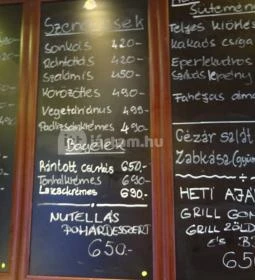 Szendvicsek
Sonkás 420-
Rántottás 420-
Szalámis 450-
Körözöttes 490-
Vegetáriánus 490-
Padlizsánkrémes 490-
Bagelek
Rántott csirkés 650.-
Tonhalkrémes 690-
Lazackrémes 690.-
NUTELLÁS
POHÁRDESSZERT
650.-
Sütemén
Teljes kiörlés
Kakaós csiga
Eperlekváros
lepény
Fahéjas alma
Cézár salát
Zabkása
HETI AJÁ
GRILL
GRILL ZÖLD
650
jártam.hu